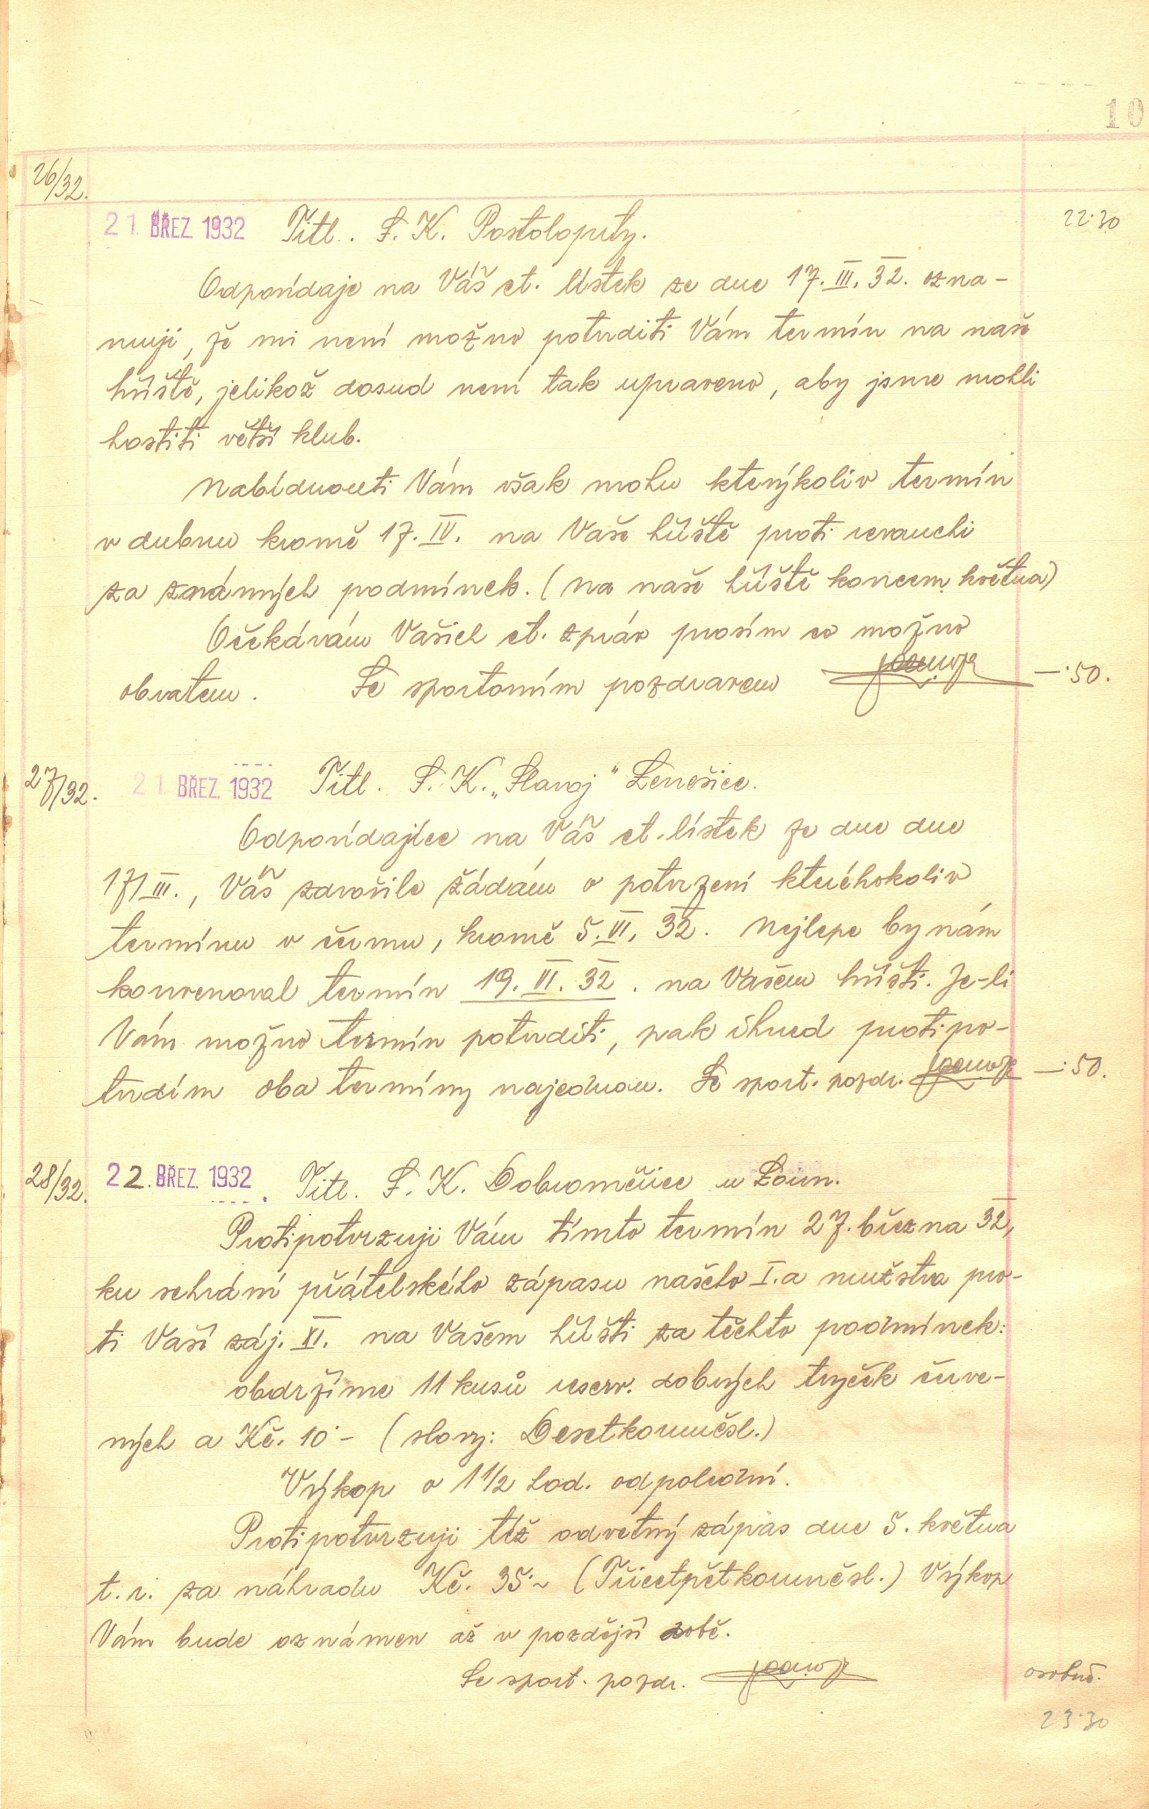 10
26/32.
21. BŘEZ. 1932 Titl. S. K. Postoloprty. 22·30
Odpovídaje na Váš ct. lístek ze dne 17. III. 32. ozna-
muji, že mi není možno potvrditi Vám termín na naše
hřiště, jelikož dosud není tak upraveno, aby jsme mohli
hostiti větší klub.
Nabídnouti Vám však mohu kterýkoliv termín
v dubnu kromě 17. IV. na Vaše hřiště proti revanchi
za známých podmínek. (na naše hřiště koncem května)
Očekávám Vašich ct. zpráv prosím co možno
obratem. Se sportovním pozdravem —·50.
27/32. 21. BŘEZ. 1932 Titl. S. K. „Slavoj" Lenešice.
Odpovídajíce na Váš ct. lístek ze dne dne
17/III., Váš zdvořile žádám o potvrzení kteréhokoliv
termínu v červnu, kromě 5. VI. 32. Nejlépe by nám
konvenoval termín 19. VI. 32. na Vašem hřišti. Je-li
Vám možno termín potvrditi, pak ihned protipo-
tvrdím oba termíny najednou. Se sport. pozdr. —·50.
28/32. 22. BŘEZ. 1932. Titl. S. K. Dobroměřice u Loun.
Protipotvrzuji Vám tímto termín 27. března 32,
ku sehrání přátelského zápasu našeho I.a mužstva pro-
ti Vaší záj. XI. na Vašem hřišti za těchto podmínek:
obdržíme 11 kusů reserv. dobrých tryček červe-
ných a Kč. 10·- (slovy: Desetkorunčsl.)
Výkop o 1 1/2 hod. odpolední.
Protipotvrzuji též odvetný zápas dne 5. května
t. r. za náhradu Kč. 35·- (Třicetpětkorunčsl.) Výkop
Vám bude oznámen až v pozdější době.
Se sport. pozdr. osobně.
23·30